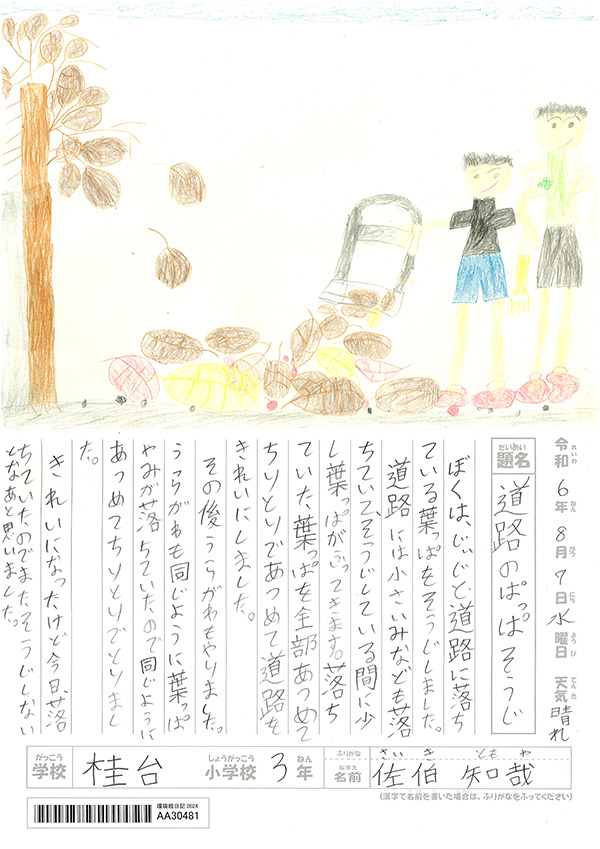 令和6年8月7日水曜日 天気晴れ
れいわ ねん がつ にち ようび てんき
題名 道路のぱっぱそうじ
だいめい
ぼくは、じぃじと道路に落ち
ている葉っぱをそうじしました。
道路には小さいみなども落
ちていてそうじしている間に少
し葉っぱがふってきます。落ち
ていた葉っぱを全部あつめて
ちりとりであつめて道路を
きれいにしました。
その後うらがわもやりました。
うらがわも同じように葉っぱ
やみが落ちていたので同じように
あつめてちりとりでとりまし
た。
きれいになったけど今日、落
ちていたのでまたそうじしない
となあと思いました。
がっこう しょうがっこう ねん ふりがな さいき ともや
学校 桂台 小学校 3年 なまえ 名前 佐伯 知哉
(漢字で名前を書いた場合は、ふりがなをふってください)
環境絵日記2024
AA30481